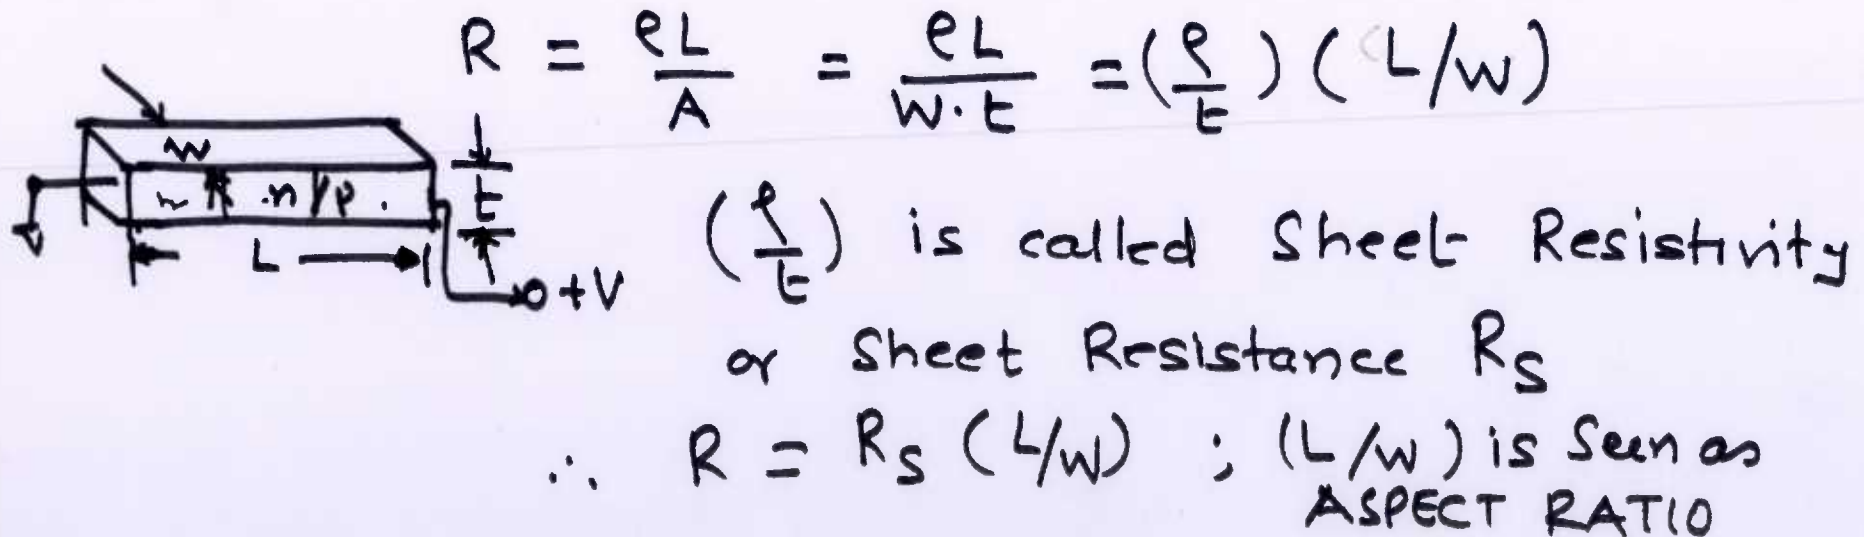 R = ρL/A = ρL/W·t = (ρ/t) (L/W)
W
n/p
t
L
+V
(ρ/t) is called Sheet Resistivity
or Sheet Resistance RS
∴ R = RS (L/W) ; (L/W) is Seen as
ASPECT RATIO